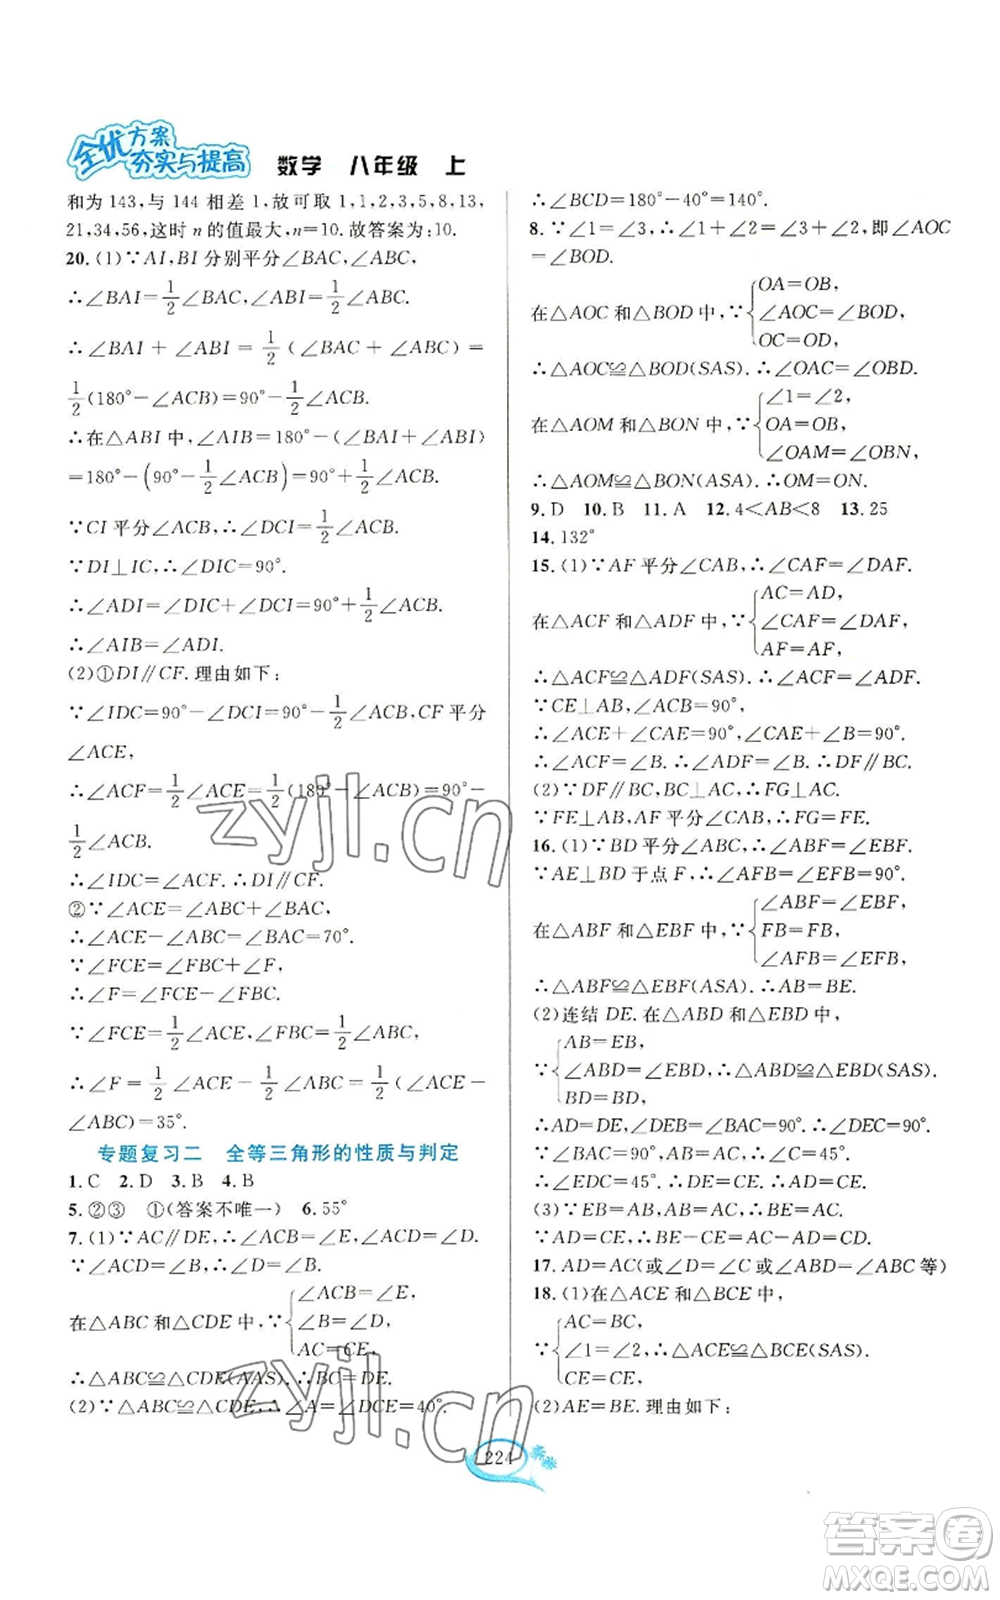 全优方案
夯实与提高 数学 八年级 上
和为 143,与 144 相差 1,故可取 1,1,2,3,5,8,13,
21,34,56,这时 n 的值最大,n=10.故答案为:10.
20.(1)∵AI,BI 分别平分∠BAC,∠ABC,
∴∠BAI=1/2∠BAC,∠ABI=1/2∠ABC.
∴∠BAI+∠ABI=1/2(∠BAC+∠ABC)=
1/2(180°-∠ACB)=90°-1/2∠ACB.
∴在△ABI 中,∠AIB=180°-(∠BAI+∠ABI)
=180°-(90°-1/2∠ACB)=90°+1/2∠ACB.
∵CI 平分∠ACB,∴∠DCI=1/2∠ACB.
∵DI⊥IC,∴∠DIC=90°.
∴∠ADI=∠DIC+∠DCI=90°+1/2∠ACB.
∴∠AIB=∠ADI.
(2)①DI∥CF.理由如下:
∵∠IDC=90°-∠DCI=90°-1/2∠ACB,CF 平分
∠ACE,
∴∠ACF=1/2∠ACE=1/2(180°-∠ACB)=90°-
1/2∠ACB.
∴∠IDC=∠ACF.∴DI∥CF.
②∵∠ACE=∠ABC+∠BAC,
∴∠ACE-∠ABC=∠BAC=70°.
∵∠FCE=∠FBC+∠F,
∴∠F=∠FCE-∠FBC.
∵∠FCE=1/2∠ACE,∠FBC=1/2∠ABC,
∴∠F=1/2∠ACE-1/2∠ABC=1/2(∠ACE-
∠ABC)=35°.
专题复习二 全等三角形的性质与判定
1.C 2.D 3.B 4.B
5.②③ ①(答案不唯一) 6.55°
7.(1)∵AC∥DE,∴∠ACB=∠E,∠ACD=∠D.
∵∠ACD=∠B,∴∠B=∠D.
在△ABC 和△CDE 中,∵{∠ACB=∠E,
∠B=∠D,
AC=CE,
∴△ABC≌△CDE(AAS).∴BC=DE.
(2)∵△ABC≌△CDE,∴∠A=∠DCE=40°.
∴∠BCD=180°-40°=140°.
8.∵∠1=∠3,∴∠1+∠2=∠2+∠3,即∠AOC
=∠BOD.
在△AOC 和△BOD 中,∵{OA=OB,
∠AOC=∠BOD,
OC=OD,
∴△AOC≌△BOD(SAS).∴∠OAC=∠OBD.
在△AOM 和△BON 中,∵{∠1=∠2,
OA=OB,
∠OAM=∠OBN,
∴△AOM≌△BON(ASA).∴OM=ON.
9.D 10.B 11.A 12.4<AB<8 13.25
14.132°
15.(1)∵AF 平分∠CAB,∴∠CAF=∠DAF.
在△ACF 和△ADF 中,∵{AC=AD,
∠CAF=∠DAF,
AF=AF,
∴△ACF≌△ADF(SAS).∴∠ACF=∠ADF.
∵CE⊥AB,∠ACB=90°,
∴∠ACE+∠CAE=90°,∠CAE+∠B=90°.
∴∠ACF=∠B.∴∠ADF=∠B.∴DF∥BC.
(2)∵DF∥BC,BC⊥AC,∴FG⊥AC.
∵FE⊥AB,AF 平分∠CAB,∴FG=FE.
16.(1)∵BD 平分∠ABC,∴∠ABF=∠EBF.
∵AE⊥BD 于点 F,∴∠AFB=∠EFB=90°.
在△ABF 和△EBF 中,∵{∠ABF=∠EBF,
FB=FB,
∠AFB=∠EFB,
∴△ABF≌△EBF(ASA).∴AB=BE.
(2)连结 DE.在△ABD 和△EBD 中,
∵{AB=EB,
∠ABD=∠EBD,∴△ABD≌△EBD(SAS).
BD=BD,
∴∠DEB=∠BAC=90°.∴∠DEC=90°.
∵∠C=45°,
∴∠EDC=45°.∴∠C=∠EDC.∴DE=CE.
(3)∵EB=AB,AB=AC,∴EB=AC.
∵AD=DE,DE=CE,∴AD=CE.
17.AD=AC(或∠D=∠C 或∠ABD=∠ABC 等)
18.(1)在△ACE 和△BCE 中,
∵{AC=BC,
∠1=∠2,∴△ACE≌△BCE(SAS).
CE=CE,
(2)AE=BE.理由如下:
224
zyjl.cn
zyjl.cn
答案圈
MXQE.COM